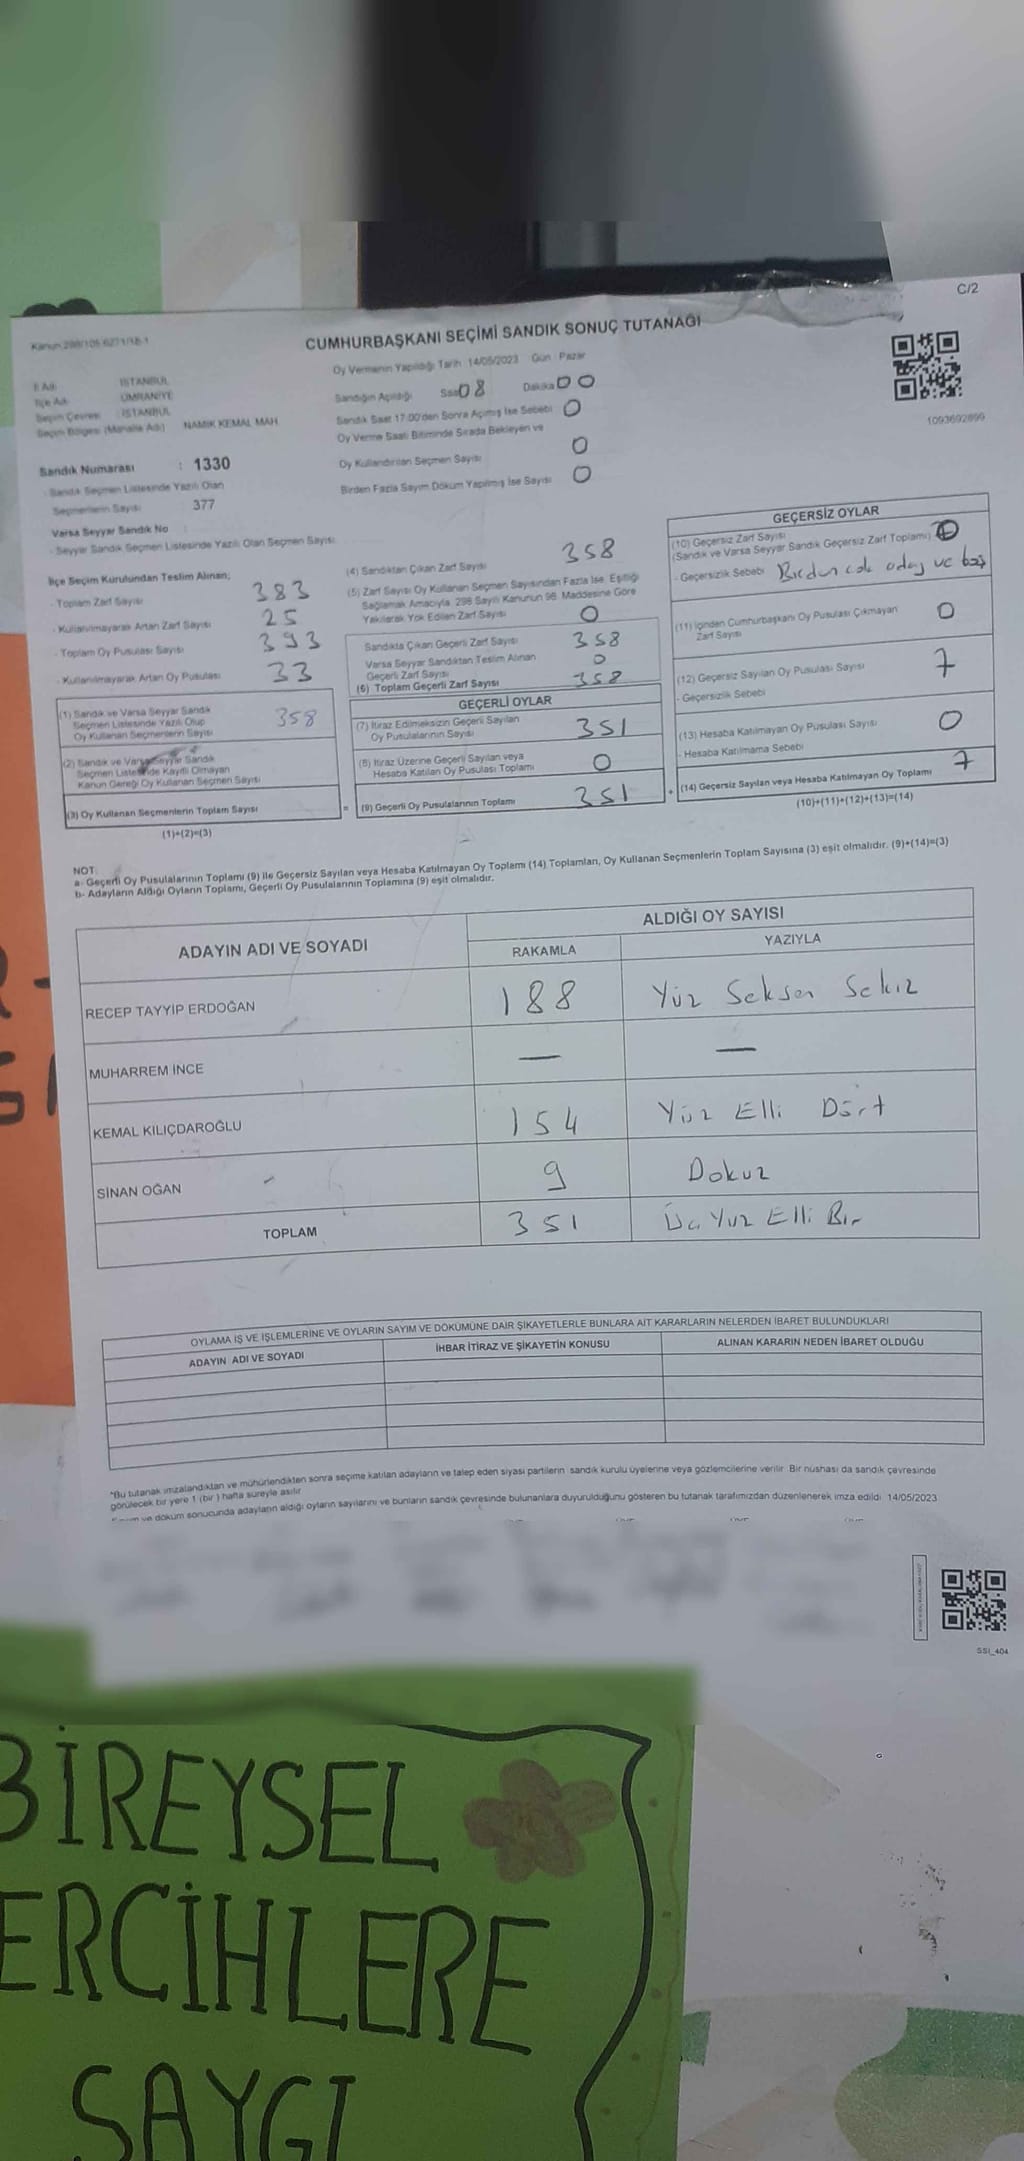 C/2
Kanun 298/105-6271/18-1
CUMHURBAŞKANI SEÇİMİ SANDIK SONUÇ TUTANAĞI
Oy Vermenin Yapıldığı Tarih 14/05/2023 Gün : Pazar
İl Adı : İSTANBUL
İlçe Adı : ÜMRANİYE
Seçim Çevresi : İSTANBUL
Seçim Bölgesi (Mahalle Adı) NAMIK KEMAL MAH.
Sandığın Açıldığı Saat 08 Dakika 00
Sandık Saat 17:00'den Sonra Açılmış İse Sebebi 0
Oy Verme Saati Bitiminde Sırada Bekleyen ve
Oy Kullandırılan Seçmen Sayısı 0
Birden Fazla Sayım Döküm Yapılmış İse Sayısı 0
1093692899
Sandık Numarası : 1330
- Sandık Seçmen Listesinde Yazılı Olan
Seçmenlerin Sayısı 377
Varsa Seyyar Sandık No :
- Seyyar Sandık Seçmen Listesinde Yazılı Olan Seçmen Sayısı
İlçe Seçim Kurulundan Teslim Alınan;
- Toplam Zarf Sayısı 383
- Kullanılmayarak Artan Zarf Sayısı 25
- Toplam Oy Pusulası Sayısı 393
- Kullanılmayarak Artan Oy Pusulası 33
(1) Sandık ve Varsa Seyyar Sandık
Seçmen Listesinde Yazılı Olup
Oy Kullanan Seçmenlerin Sayısı 358
(2) Sandık ve Varsa Seyyar Sandık
Seçmen Listesinde Kayıtlı Olmayan
Kanun Gereği Oy Kullanan Seçmen Sayısı
(3) Oy Kullanan Seçmenlerin Toplam Sayısı
(1)+(2)=(3)
(4) Sandıktan Çıkan Zarf Sayısı 358
(5) Zarf Sayısı Oy Kullanan Seçmen Sayısından Fazla İse, Eşitliği
Sağlamak Amacıyla, 298 Sayılı Kanunun 98. Maddesine Göre
Yakılarak Yok Edilen Zarf Sayısı 0
Sandıkta Çıkan Geçerli Zarf Sayısı 358
Varsa Seyyar Sandıktan Teslim Alınan
Geçerli Zarf Sayısı 0
(6) Toplam Geçerli Zarf Sayısı 358
GEÇERLİ OYLAR
(7) İtiraz Edilmeksizin Geçerli Sayılan
Oy Pusulalarının Sayısı 351
(8) İtiraz Üzerine Geçerli Sayılan veya
Hesaba Katılan Oy Pusulası Toplamı 0
= (9) Geçerli Oy Pusulalarının Toplamı 351
GEÇERSİZ OYLAR
(10) Geçersiz Zarf Sayısı
(Sandık ve Varsa Seyyar Sandık Geçersiz Zarf Toplamı)
- Geçersizlik Sebebi Birden çok aday ve boş
(11) İçinden Cumhurbaşkanı Oy Pusulası Çıkmayan
Zarf Sayısı 0
(12) Geçersiz Sayılan Oy Pusulası Sayısı 7
- Geçersizlik Sebebi
(13) Hesaba Katılmayan Oy Pusulası Sayısı 0
- Hesaba Katılmama Sebebi
+ (14) Geçersiz Sayılan veya Hesaba Katılmayan Oy Toplamı 7
(10)+(11)+(12)+(13)=(14)
NOT:
a- Geçerli Oy Pusulalarının Toplamı (9) ile Geçersiz Sayılan veya Hesaba Katılmayan Oy Toplamı (14) Toplamları, Oy Kullanan Seçmenlerin Toplam Sayısına (3) eşit olmalıdır. (9)+(14)=(3)
b- Adayların Aldığı Oyların Toplamı, Geçerli Oy Pusulalarının Toplamına (9) eşit olmalıdır.
ADAYIN ADI VE SOYADI
ALDIĞI OY SAYISI
RAKAMLA YAZIYLA
RECEP TAYYİP ERDOĞAN 188 Yüz Seksen Sekiz
MUHARREM İNCE — —
KEMAL KILIÇDAROĞLU 154 Yüz Elli Dört
SİNAN OĞAN 9 Dokuz
TOPLAM 351 Üç Yüz Elli Bir
OYLAMA İŞ VE İŞLEMLERİNE VE OYLARIN SAYIM VE DÖKÜMÜNE DAİR ŞİKAYETLERLE BUNLARA AİT KARARLARIN NELERDEN İBARET BULUNDUKLARI
ADAYIN ADI VE SOYADI İHBAR İTİRAZ VE ŞİKAYETİN KONUSU ALINAN KARARIN NEDEN İBARET OLDUĞU
*Bu tutanak imzalandıktan ve mühürlendikten sonra seçime katılan adayların ve talep eden siyasi partilerin sandık kurulu üyelerine veya gözlemcilerine verilir. Bir nüshası da sandık çevresinde
görülecek bir yere 1 (bir) hafta süreyle asılır.
ve döküm sonucunda adayların aldığı oyların sayılarını ve bunların sandık çevresinde bulunanlara duyurulduğunu gösteren bu tutanak tarafımızdan düzenlenerek imza edildi. 14/05/2023
SSI_404
BİREYSEL
ERCİHLERE
SAYGI